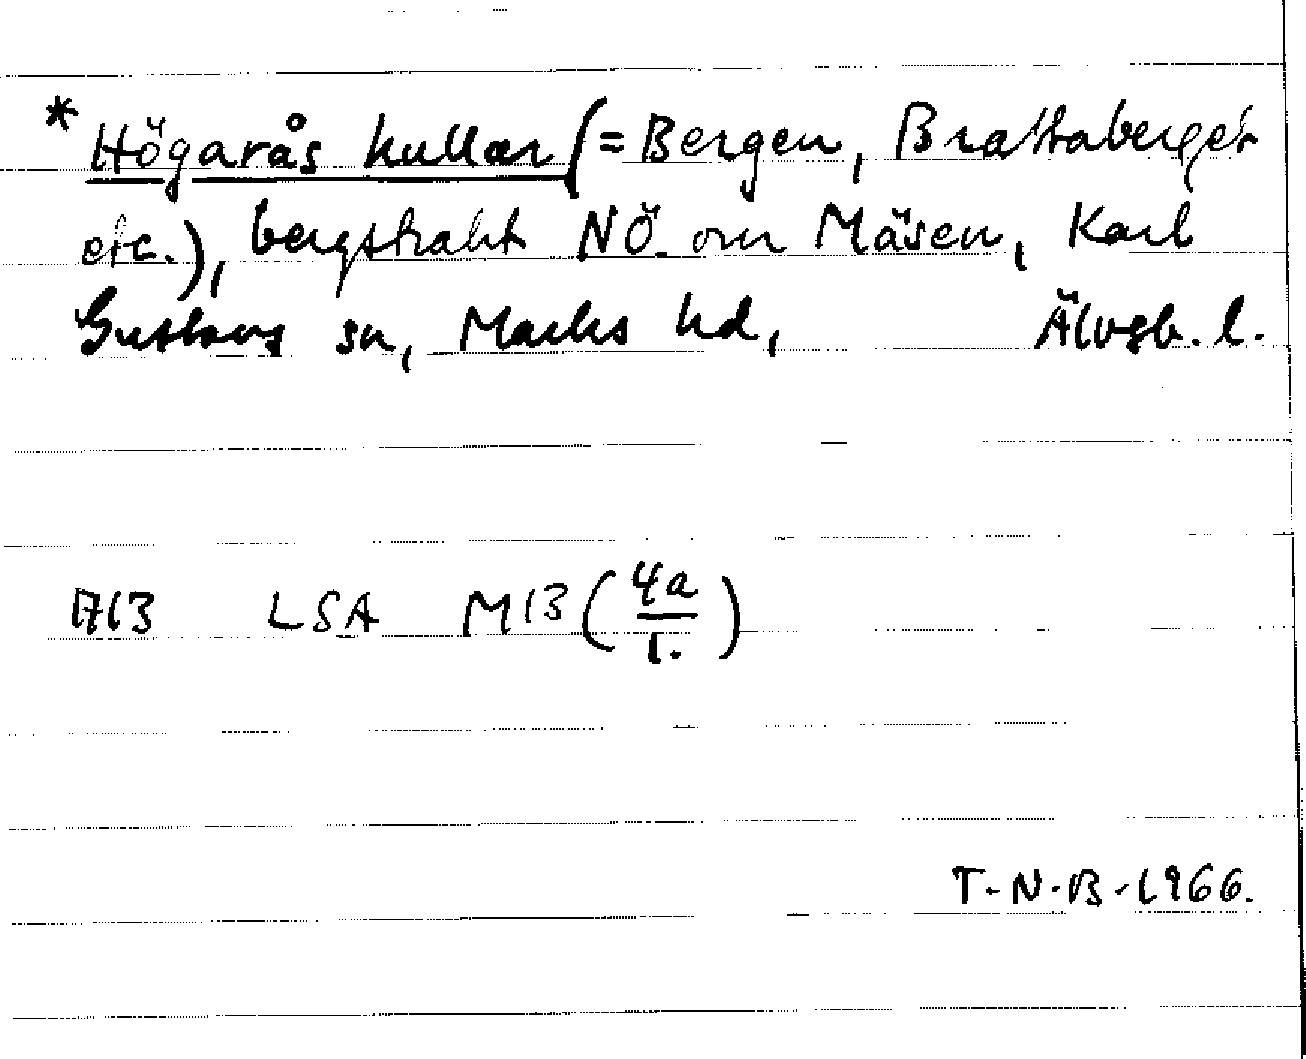 * Högarås kullar (= Bergen, Brattaberget
etc.), bergstrakt NÖ om Mäsen, Karl
Gustavs sn, Marks hd, Älvsb. l.
1713 LSA M13 (4a/1.)
T-N-B-1966.